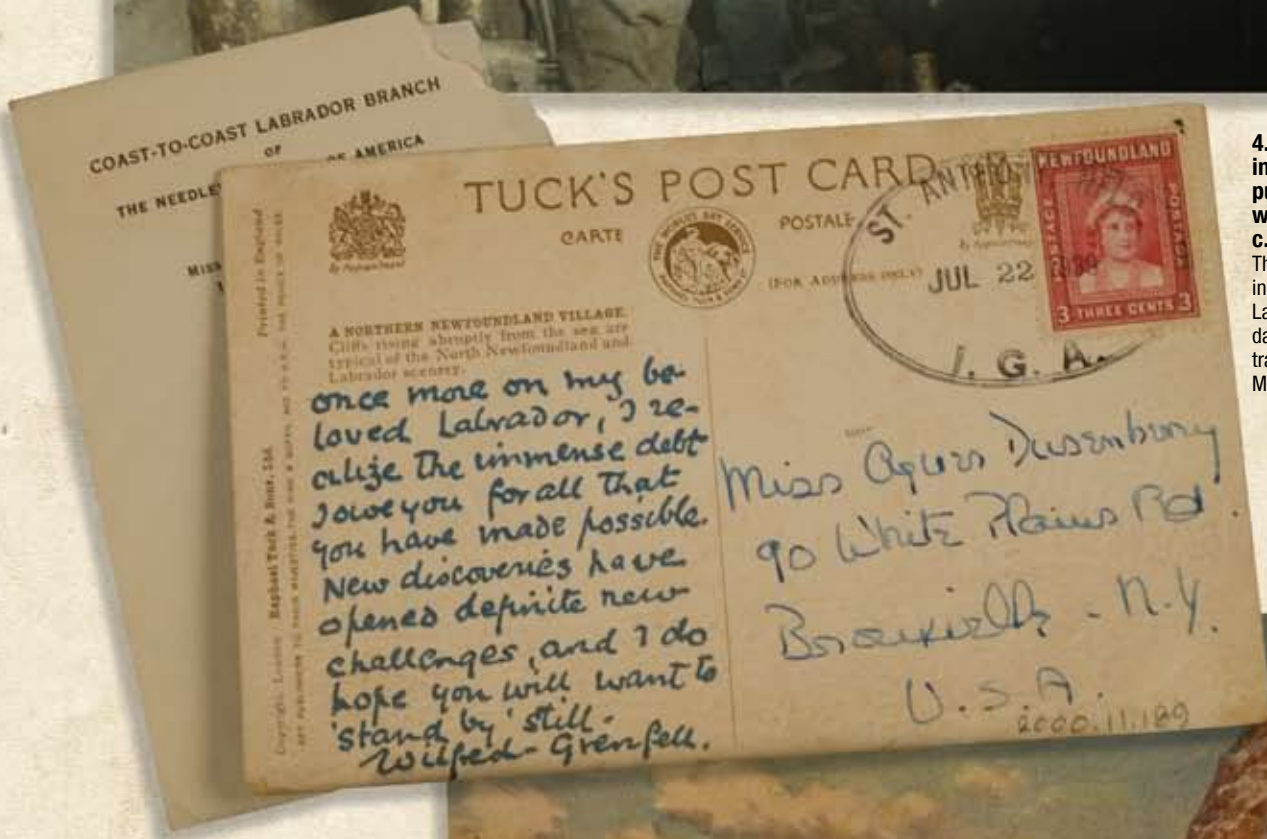 COAST-TO-COAST LABRADOR BRANCH
OF
THE NEEDLE
OF AMERICA
MISS
TUCK'S POST CARD
CARTE
POSTALE
(FOR ADDRESS ONLY)
By Appointment
By Appointment
THE WORLD'S ART SERVICE
RAPHAEL TUCK & SONS LTD
Printed in England
Copyright London Raphael Tuck & Sons, Ltd.
A NORTHERN NEWFOUNDLAND VILLAGE.
Cliffs rising abruptly from the sea are
typical of the North Newfoundland and
Labrador scenery.
once more on my be-
loved Labrador, I re-
alize the immense debt
I owe you for all that
you have made possible.
New discoveries have
opened definite new
challenges, and I do
hope you will want to
'stand by' still.
Wilfred Grenfell.
ST. ANTHONY
JUL 22 1939
I. G. A.
NEWFOUNDLAND
POSTAGE
POSTAGE
3 THREE CENTS 3
Miss Dusenbury
90 White Plains Rd.
Bronxville - N.Y.
U.S.A.
2000.11.189
4.
in
pu
w
c.
Th
in
La
da
tra
M